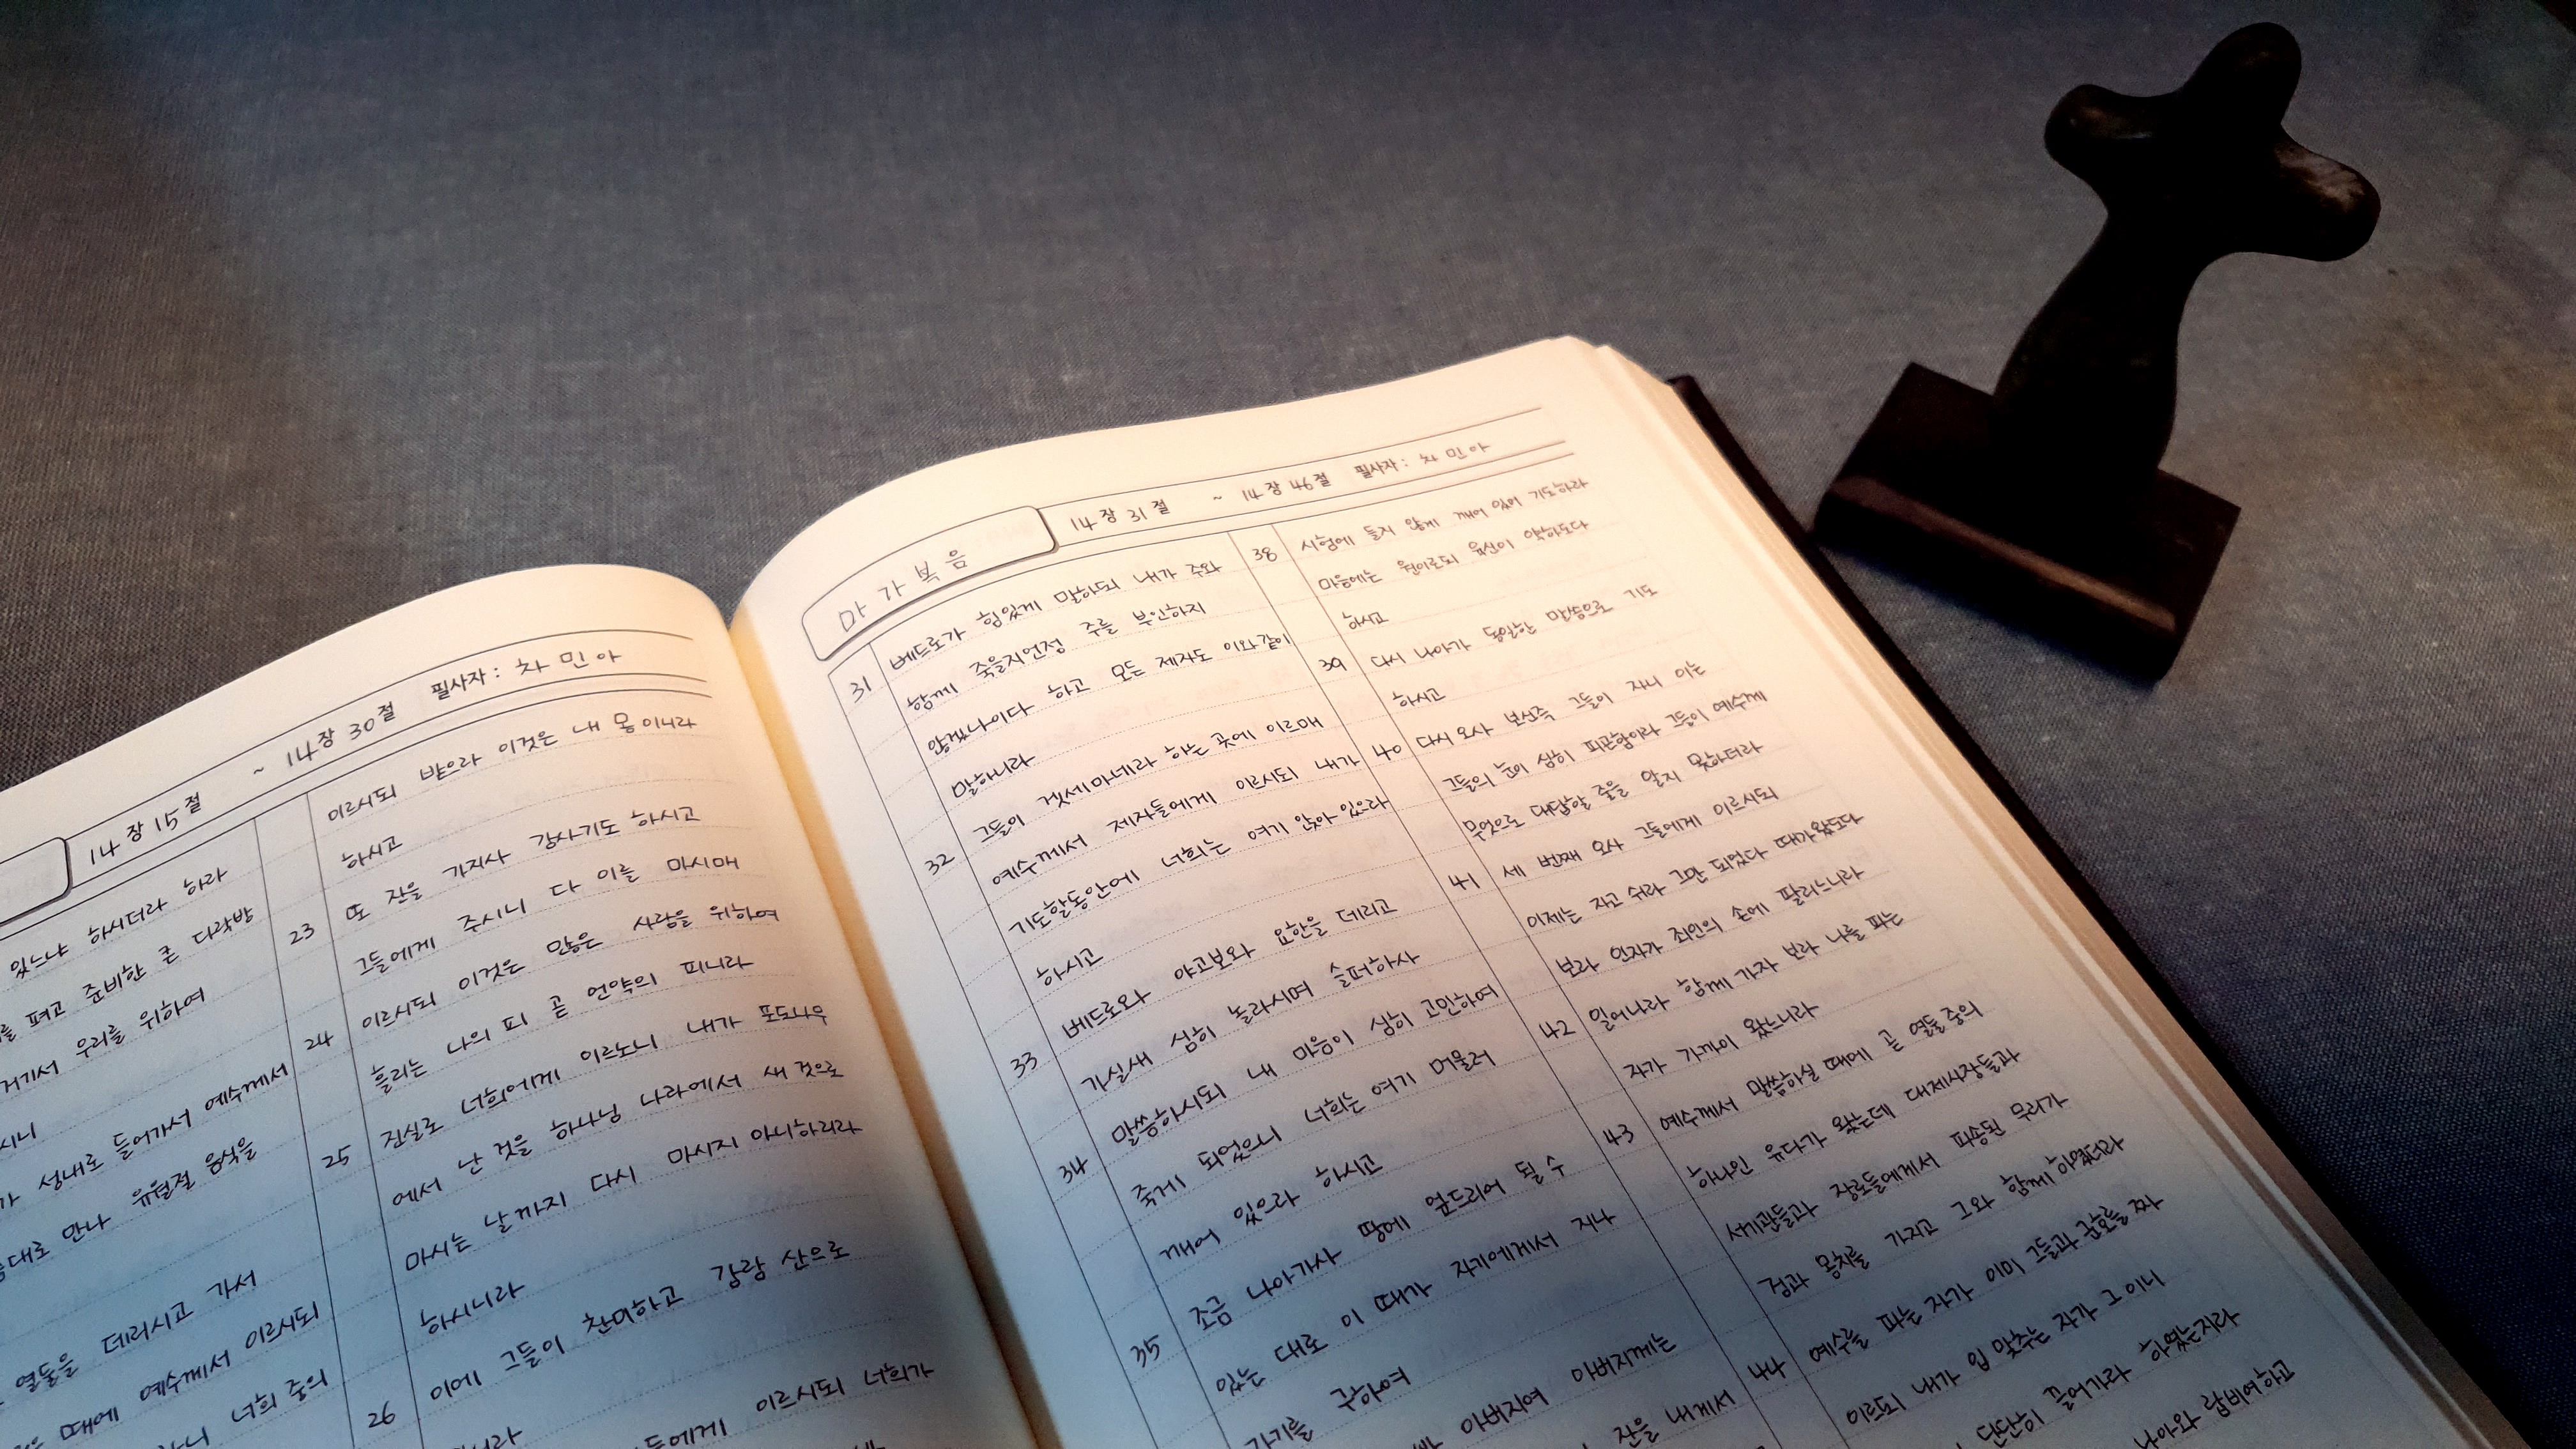 14장 15절 ~ 14장 30절 필사자 : 차민아
있느냐 하시더라 하라
를 펴고 준비한 큰 다락방
거기서 우리를 위하여
시니
가 성내로 들어가서 예수께서
대로 만나 유월절 음식을
열둘을 데리시고 가서
때에 예수께서 이르시되
너희 중의
이르시되 받으라 이것은 내 몸이니라
하시고
23 또 잔을 가지사 감사기도 하시고
그들에게 주시니 다 이를 마시매
24 이르시되 이것은 많은 사람을 위하여
흘리는 나의 피 곧 언약의 피니라
25 진실로 너희에게 이르노니 내가 포도나무
에서 난 것을 하나님 나라에서 새 것으로
마시는 날까지 다시 마시지 아니하리라
하시니라
26 이에 그들이 찬미하고 감람 산으로
니라
들에게 이르시되 너희가
마가복음
14장 31절 ~ 14장 46절 필사자 : 차민아
31 베드로가 힘있게 말하되 내가 주와
함께 죽을지언정 주를 부인하지
않겠나이다 하고 모든 제자도 이와같이
말하니라
32 그들이 겟세마네라 하는 곳에 이르매
예수께서 제자들에게 이르시되 내가
기도할동안에 너희는 여기 앉아 있으라
하시고
33 베드로와 야고보와 요한을 데리고
가실새 심히 놀라시며 슬퍼하사
34 말씀하시되 내 마음이 심히 고민하여
죽게 되었으니 너희는 여기 머물러
깨어 있으라 하시고
35 조금 나아가사 땅에 엎드리어 될 수
있는 대로 이 때가 자기에게서 지나
가기를 구하여
아버지여 아버지께는
잔을 내게서
38 시험에 들지 않게 깨어 있어 기도하라
마음에는 원이로되 육신이 약하도다
하시고
39 다시 나아가 동일한 말씀으로 기도
하시고
40 다시 오사 보신즉 그들이 자니 이는
그들의 눈이 심히 피곤함이라 그들이 예수께
무엇으로 대답할 줄을 알지 못하더라
41 세 번째 오사 그들에게 이르시되
이제는 자고 쉬라 그만 되었다 때가 왔도다
보라 인자가 죄인의 손에 팔리느니라
42 일어나라 함께 가자 보라 나를 파는
자가 가까이 왔느니라
43 예수께서 말씀하실 때에 곧 열둘 중의
하나인 유다가 왔는데 대제사장들과
서기관들과 장로들에게서 파송된 무리가
검과 몽치를 가지고 그와 함께 하였더라
44 예수를 파는 자가 이미 그들과 군호를 짜
이르되 내가 입 맞추는 자가 그 이니
단단히 끌어가라 하였는지라
나아와 랍비여 하고